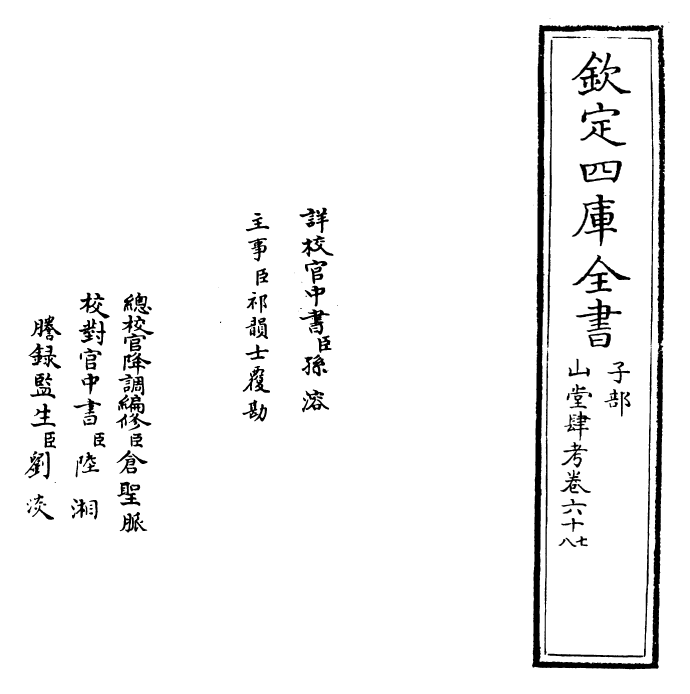 欽定四庫全書
子部
山堂肆考卷六十七八
詳校官中書臣孫溶
主事臣祁韻士覆勘
總校官降調編修臣倉聖脈
校對官中書臣陸湘
謄録監生臣劉淡